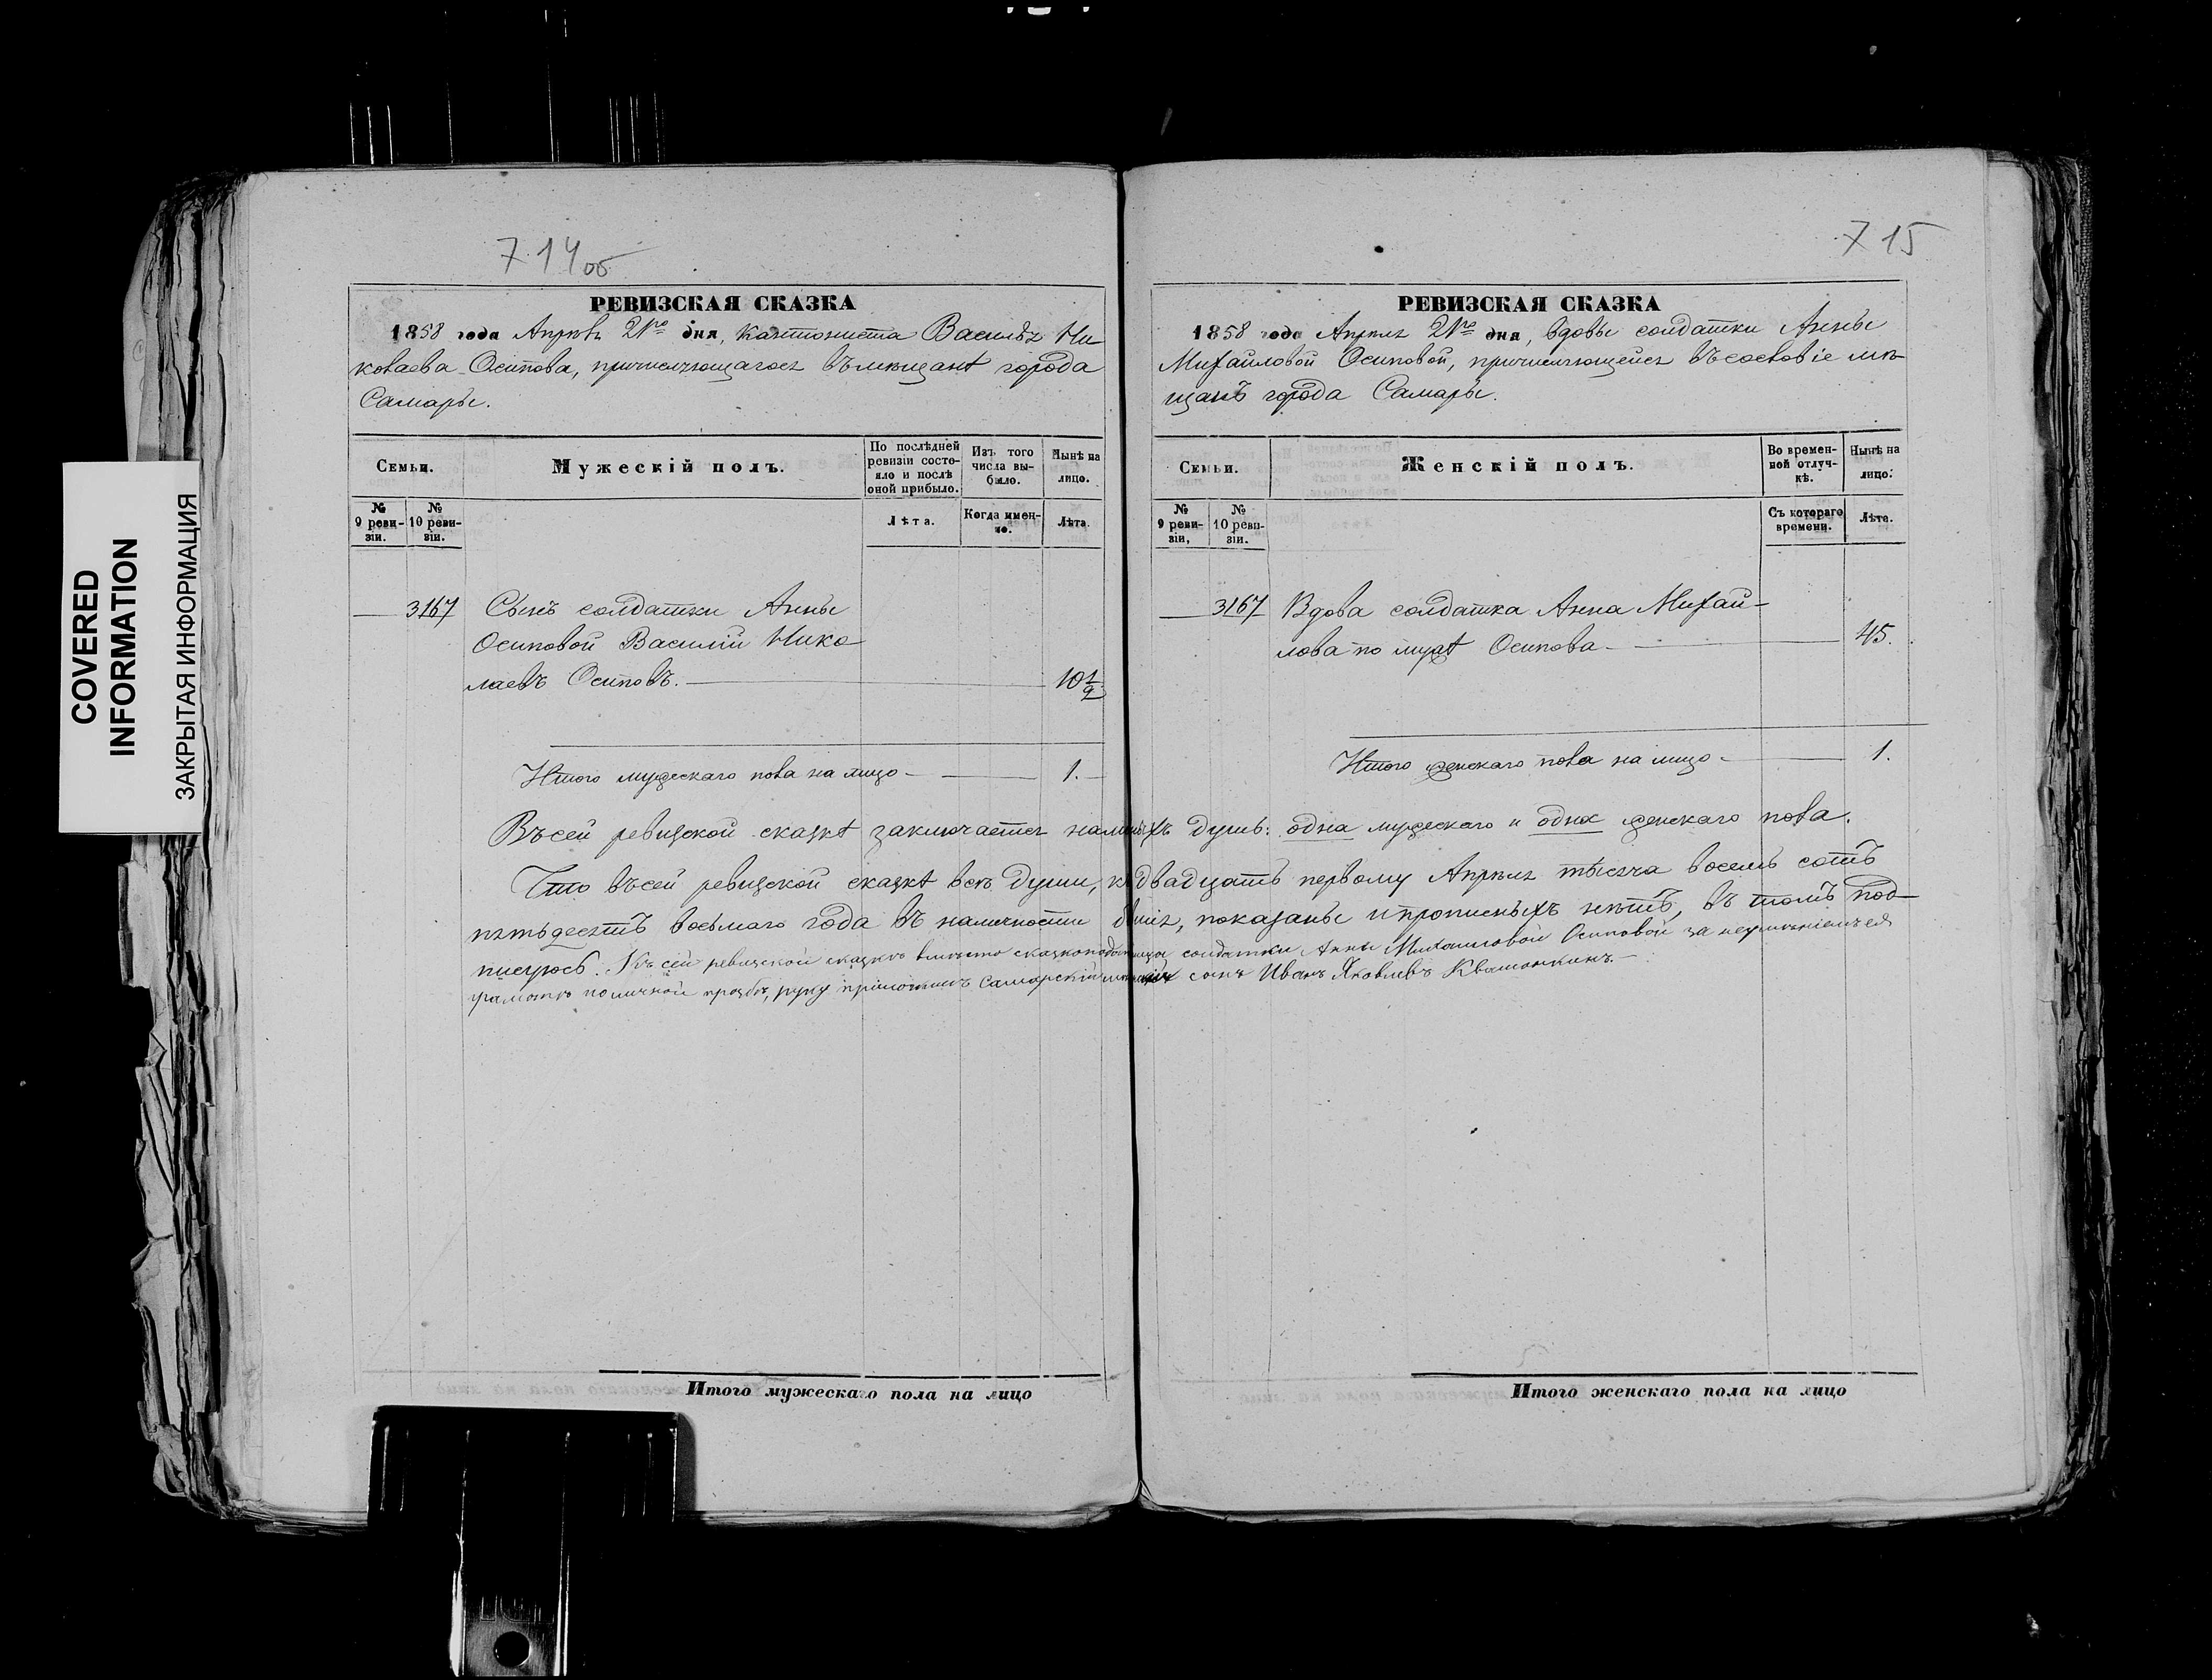 COVERED
INFORMATION
ЗАКРЫТАЯ ИНФОРМАЦИЯ
714об
РЕВИЗСКАЯ СКАЗКА
1858 года Апрѣля 21го дня, кантониста Василья Ни-
колаева Осипова, причисляющагося въ мѣщане города
Самары.
Семьи.
Мужескій полъ.
По послѣдней ревизіи состо-яло и послѣ оной прибыло.
Изъ того числа вы-было.
Нынѣ на лицо.
№ 9 реви-зіи.
№ 10 реви-зіи.
Лѣта.
Когда имен-но.
Лѣта.
3167 Сынъ солдатки Анны
Осиповой Василій Нико
лаевъ Осиповъ. 10 1/2
Итого мужескаго пола на лицо - 1.
715
РЕВИЗСКАЯ СКАЗКА
1858 года Апрѣля 21го дня, вдовы солдатки Анны
Михайловой Осиповой, причисляющейся въ сословіе мѣ-
щанъ города Самары.
Семьи.
Женскій полъ.
Во времен-ной отлуч-кѣ.
Нынѣ на лицо.
№ 9 реви-зіи,
№ 10 реви-зіи.
Съ котораго времени.
Лѣта.
3167 Вдова солдатка Анна Михай-
лова по мужѣ Осипова - 45.
Итого женскаго пола на лицо - 1.
Въ сей ревизской сказкѣ заключается наличныхъ душъ: одна мужескаго и одна женскаго пола.
Что въ сей ревизской сказкѣ всѣ души, къ двадцать первому Апрѣля тысяча восемь сотъ
пятьдесятъ восьмаго года въ наличности бывшія, показаны и прописныхъ нѣтъ, въ томъ под-
писуюсь. Къ сей ревизской сказкѣ вмѣсто сказкоподательницы солдатки Анны Михайловой Осиповой за неумѣніемъ ея
грамотѣ по личной прозбѣ, руку приложилъ Самарскій мѣщанскій сынъ Иванъ Яковлевъ Квашонкинъ.
Итого мужескаго пола на лицо
Итого женскаго пола на лицо